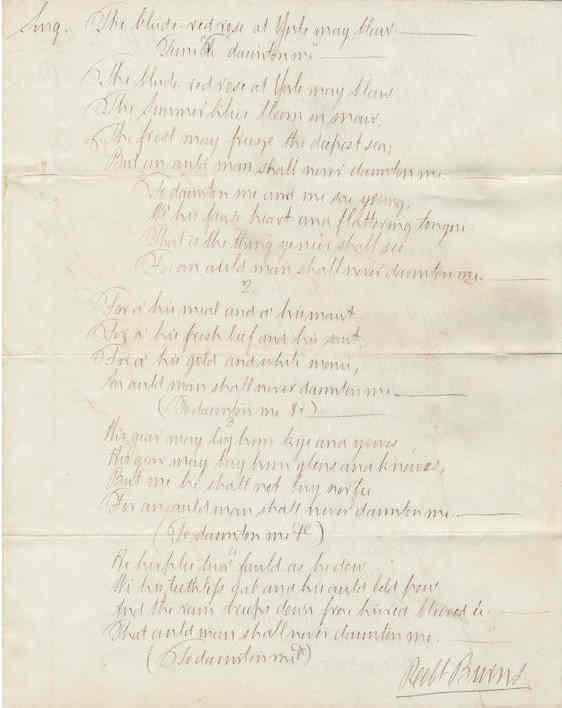 Song. The blude-red rose at Yule may blaw
Tune To daunton me
The blude red rose at Yule may blaw
The Simmer lilies bloom in snaw.
The frost may freeze the deepest sea;
But an auld man shall never daunton me.
To daunton me and me sae young,
Wi his fause heart and flattering tongue
That is the thing ye ne'er shall see
For an auld man shall never daunton me.
2
For a' his meal and a' his maut
For a' his fresh beef and his saut
For a' his gold and white monie,
An auld man shall never daunton me
(To daunton me &c)
3
His gear may buy him kye and yowes
His gear may buy him glens and knowes,
But me he shall not buy nor fee
For an auld man shall never daunton me.
(To daunton me &c)
4
He hirples twa fauld as he dow
Wi his teethless gab and his auld beld pow
And the rain dreeps down frae his red bleared e'e
That auld man shall never daunton me.
(To daunton me &c)
Robt Burns